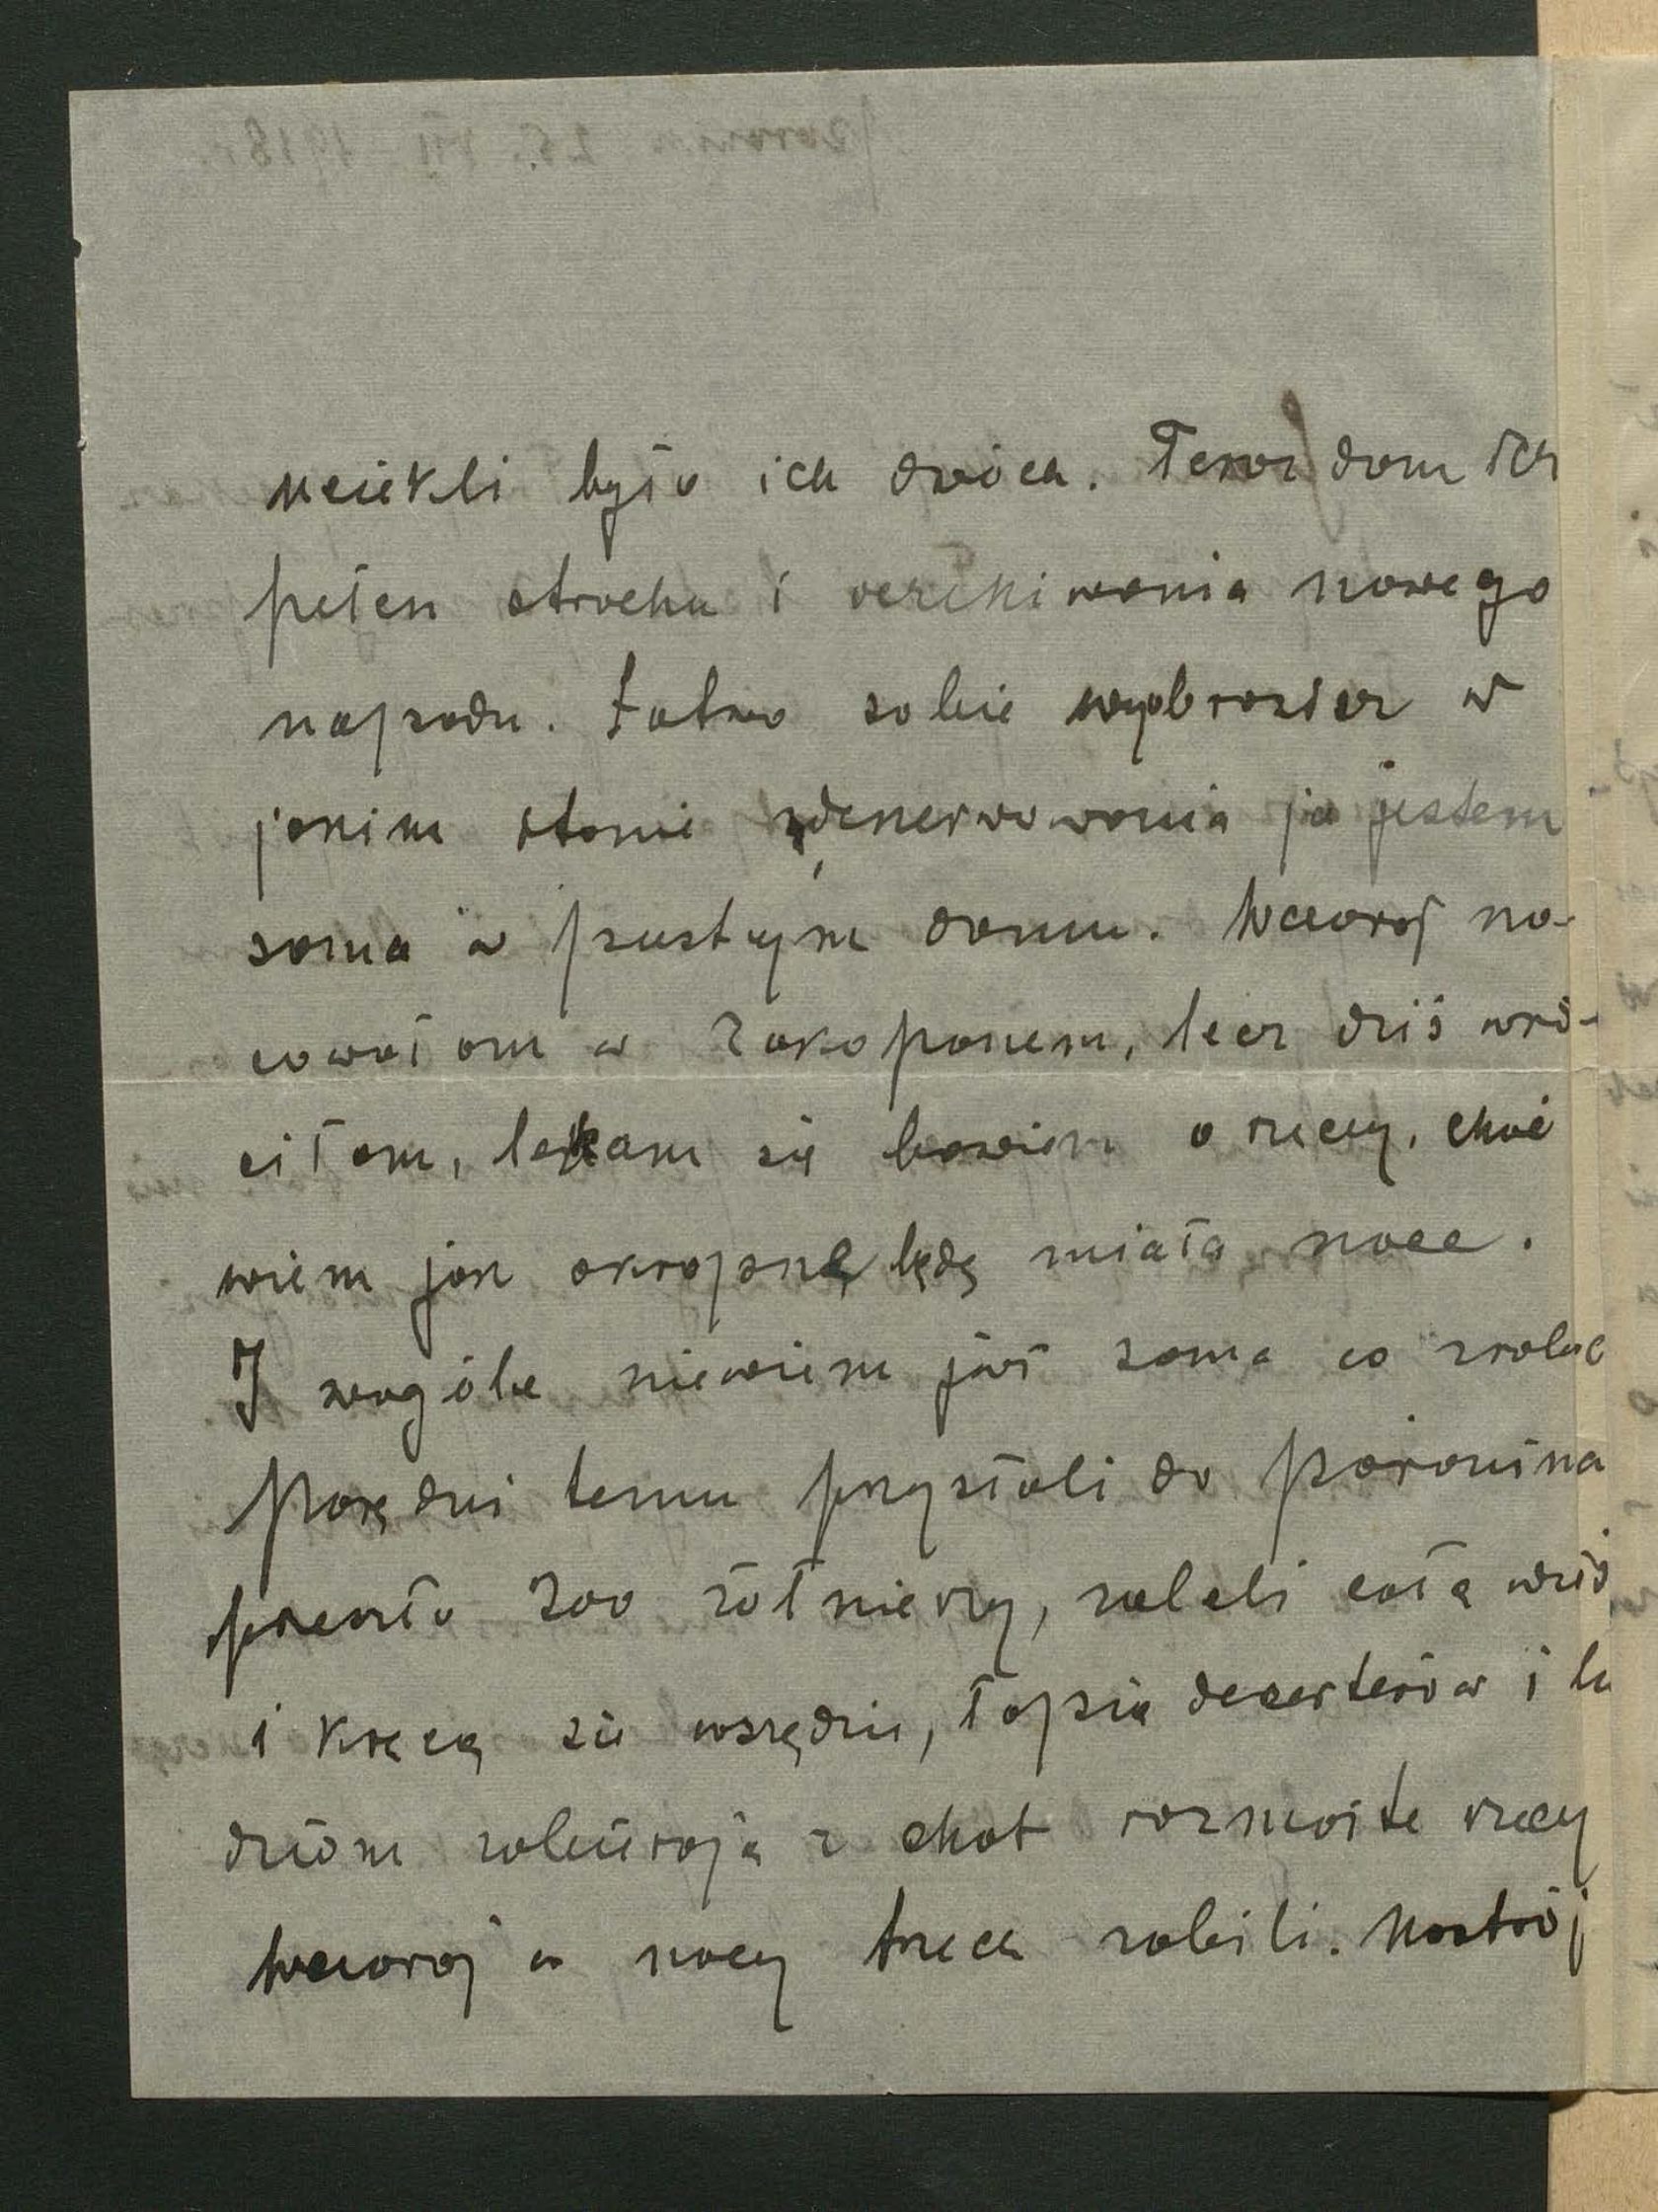 uciekli było ich dwóch. Teraz dom ich
pełen strachu i oczekiwania nowego
napadu. Łatwo sobie wyobrazisz w
jakim stanie zdenerwowania ja jestem
sama w pustym domu. Wczoraj no-
cowałam w Zakopanem, lecz dziś wró-
ciłam, lękam się bowiem o rzeczy, choć
wiem jak okropne będę miała noce.
I wogóle niewiem już sama co zrobić
Parę dni temu przysłali do Poronina
przeszło 200 żołnierzy, zalali całą wieś
i kręcą się wszędzie, łapią dezerterów i lu
dziom zabierają z chat rozmaite rzeczy
Wczoraj w nocy trzech zabili. Nastrój